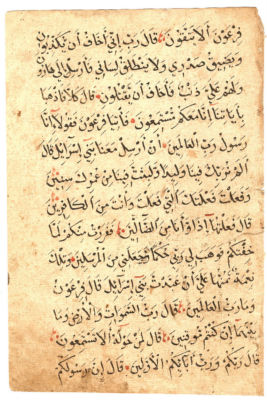 فِرْعَوْنَ اَلَا يَتَّقُونَ قَالَ رَبِّ اِنِّي اَخَافُ اَنْ يُكَذِّبُونِ
وَيَضِيقُ صَدْرِي وَلَا يَنْطَلِقُ لِسَانِي فَاَرْسِلْ اِلٰى هَارُونَ
وَلَهُمْ عَلَيَّ ذَنْبٌ فَاَخَافُ اَنْ يَقْتُلُونِ قَالَ كَلَّا فَاذْهَبَا
بِاٰيَاتِنَا اِنَّا مَعَكُمْ مُسْتَمِعُونَ فَاْتِيَا فِرْعَوْنَ فَقُولَا اِنَّا
رَسُولُ رَبِّ الْعَالَمِينَ اَنْ اَرْسِلْ مَعَنَا بَنِي اِسْرَائِلَ قَالَ
اَلَمْ نُرَبِّكَ فِينَا وَلِيدًا وَلَبِثْتَ فِينَا مِنْ عُمُرِكَ سِنِينَ
وَفَعَلْتَ فَعْلَتَكَ الَّتِي فَعَلْتَ وَاَنْتَ مِنَ الْكَافِرِينَ
قَالَ فَعَلْتُهَا اِذًا وَاَنَا مِنَ الضَّالِّينَ فَفَرَرْتُ مِنْكُمْ لَمَّا
خِفْتُكُمْ فَوَهَبَ لِي رَبِّي حُكْمًا وَجَعَلَنِي مِنَ الْمُرْسَلِينَ وَتِلْكَ
نِعْمَةٌ تَمُنُّهَا عَلَيَّ اَنْ عَبَّدْتَ بَنِي اِسْرَائِلَ قَالَ فِرْعَوْنُ
وَمَا رَبُّ الْعَالَمِينَ قَالَ رَبُّ السَّمٰوَاتِ وَالْاَرْضِ وَمَا
بَيْنَهُمَا اِنْ كُنْتُمْ مُوقِنِينَ قَالَ لِمَنْ حَوْلَهُ اَلَا تَسْتَمِعُونَ
قَالَ رَبُّكُمْ وَرَبُّ اٰبَائِكُمُ الْاَوَّلِينَ قَالَ اِنَّ رَسُولَكُمُ